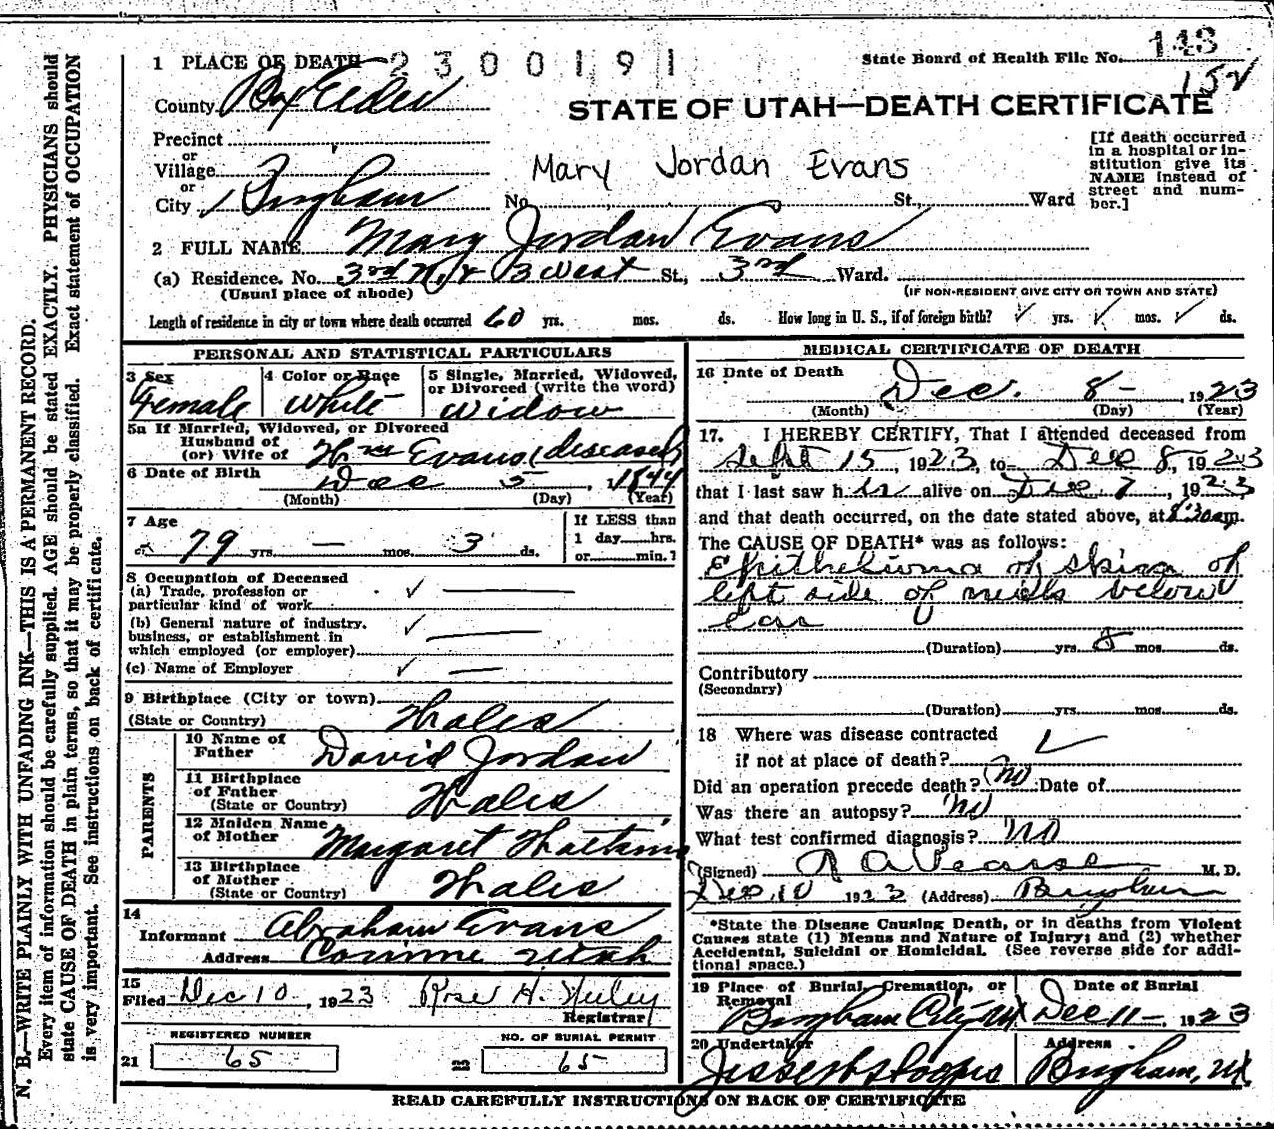 N. B.—WRITE PLAINLY WITH UNFADING INK—THIS IS A PERMANENT RECORD.
Every item of information should be carefully supplied. AGE should be stated EXACTLY. PHYSICIANS should
state CAUSE OF DEATH in plain terms, so that it may be properly classified. Exact statement of OCCUPATION
is very important. See instructions on back of certificate.
1 PLACE OF DEATH 2300191
State Board of Health File No. 143
152
County Box Elder
STATE OF UTAH—DEATH CERTIFICATE
Precinct
or
Village
or
City Brigham
Mary Jordan Evans
No. St., Ward
[If death occurred
in a hospital or in-
stitution give its
NAME instead of
street and num-
ber.]
2 FULL NAME Mary Jordan Evans
(a) Residence. No. 3rd N. & 3 West St., 3rd Ward.
(Usual place of abode)
(IF NON-RESIDENT GIVE CITY OR TOWN AND STATE)
Length of residence in city or town where death occurred 60 yrs. mos. ds. How long in U. S., if of foreign birth? ✓ yrs. ✓ mos. ✓ ds.
PERSONAL AND STATISTICAL PARTICULARS
3 Sex
Female
4 Color or Race
White
5 Single, Married, Widowed,
or Divorced (write the word)
Widow
5a If Married, Widowed, or Divorced
Husband of
(or) Wife of Wm Evans (deceased)
6 Date of Birth Dec 5, 1844
(Month) (Day) (Year)
7 Age
79 yrs — mos. 3 ds.
If LESS than
1 day hrs.
or min.?
8 Occupation of Deceased
(a) Trade, profession or
particular kind of work ✓ —
(b) General nature of industry,
business, or establishment in
which employed (or employer) ✓ —
(c) Name of Employer ✓ —
9 Birthplace (City or town)
(State or Country) Wales
PARENTS
10 Name of
Father David Jordan
11 Birthplace
of Father
(State or Country) Wales
12 Maiden Name
of Mother Margaret Watkins
13 Birthplace
of Mother
(State or Country) Wales
14
Informant Abraham Evans
Address Corinne Utah
15
Filed Dec 10, 1923 Rose H.
Registrar
REGISTERED NUMBER
21 65
NO. OF BURIAL PERMIT
22 65
MEDICAL CERTIFICATE OF DEATH
16 Date of Death Dec. 8 - 1923
(Month) (Day) (Year)
17. I HEREBY CERTIFY, That I attended deceased from
Sept 15, 1923, to Dec 8, 1923
that I last saw her alive on Dec 7, 1923
and that death occurred, on the date stated above, at 8:30am.
The CAUSE OF DEATH* was as follows:
Epithelioma of skin of
left side of neck below
ear
(Duration) yrs. 8 mos. ds.
Contributory
(Secondary)
(Duration) yrs. mos. ds.
18 Where was disease contracted
if not at place of death? ✓
Did an operation precede death? No Date of
Was there an autopsy? No
What test confirmed diagnosis? No
(Signed) R A Pearse M. D.
Dec, 10 1923 (Address) Brigham
*State the Disease Causing Death, or in deaths from Violent
Causes state (1) Means and Nature of Injury; and (2) whether
Accidental, Suicidal or Homicidal. (See reverse side for addi-
tional space.)
19 Place of Burial, Cremation, or
Removal
Brigham City Ut
Date of Burial
Dec 11 - 1923
20 Undertaker
Address
Brigham, Ut
READ CAREFULLY INSTRUCTIONS ON BACK OF CERTIFICATE